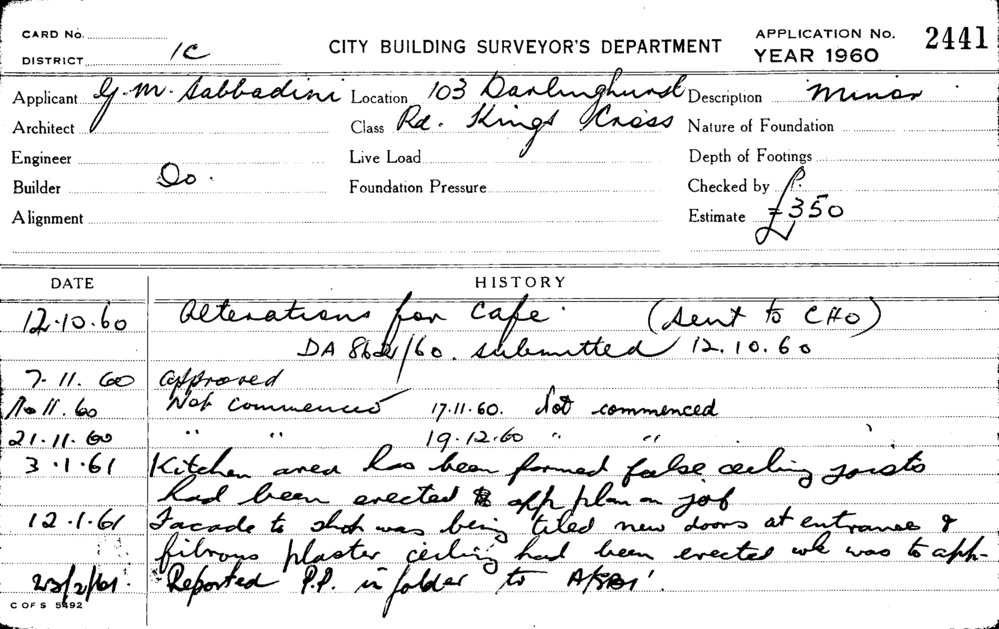 CARD No.
DISTRICT 1C
CITY BUILDING SURVEYOR'S DEPARTMENT
APPLICATION No. 2441
YEAR 1960
Applicant G. M. Sabbadini Location 103 Darlinghurst Description Minor
Architect Class Rd. Kings Cross Nature of Foundation
Engineer Live Load Depth of Footings
Builder Do. Foundation Pressure Checked by P.
Alignment Estimate £350
DATE HISTORY
12.10.60 Alterations for Cafe. (Sent to CHO)
DA /60. submitted 12.10.60
7.11.60 Approved
10.11.60 Not commenced 17.11.60. Not commenced
21.11.60 " " 19.12.60 " "
3.1.61 Kitchen area has been formed false ceiling joists
had been erected app plan on job
12.1.61 Facade to shop was being tiled new doors at entrance &
fibrous plaster ceiling had been erected wk was to app-
23/2/61 Reported P.P. in folder to
C OF S 5492